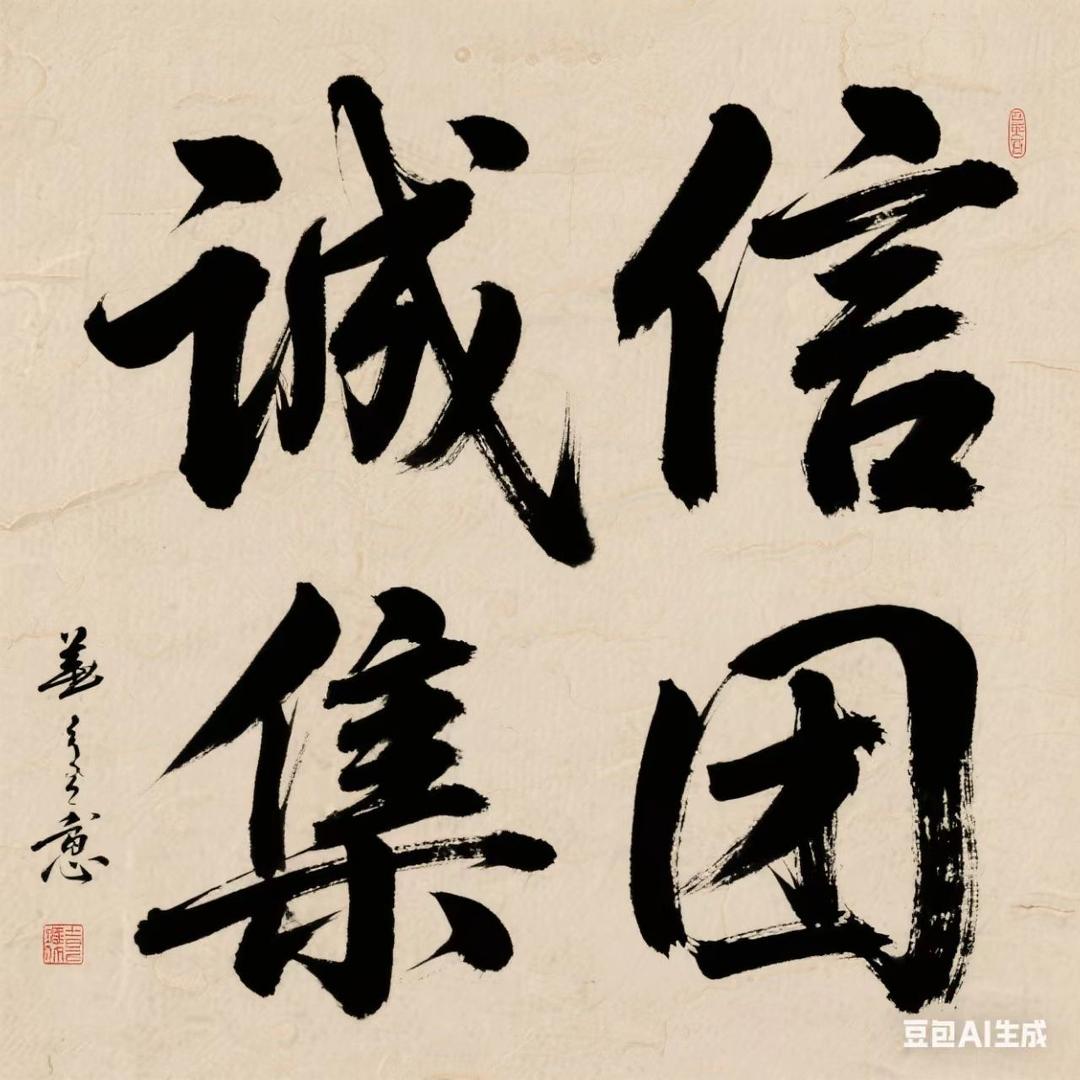 诚信
集团
豆包AI生成